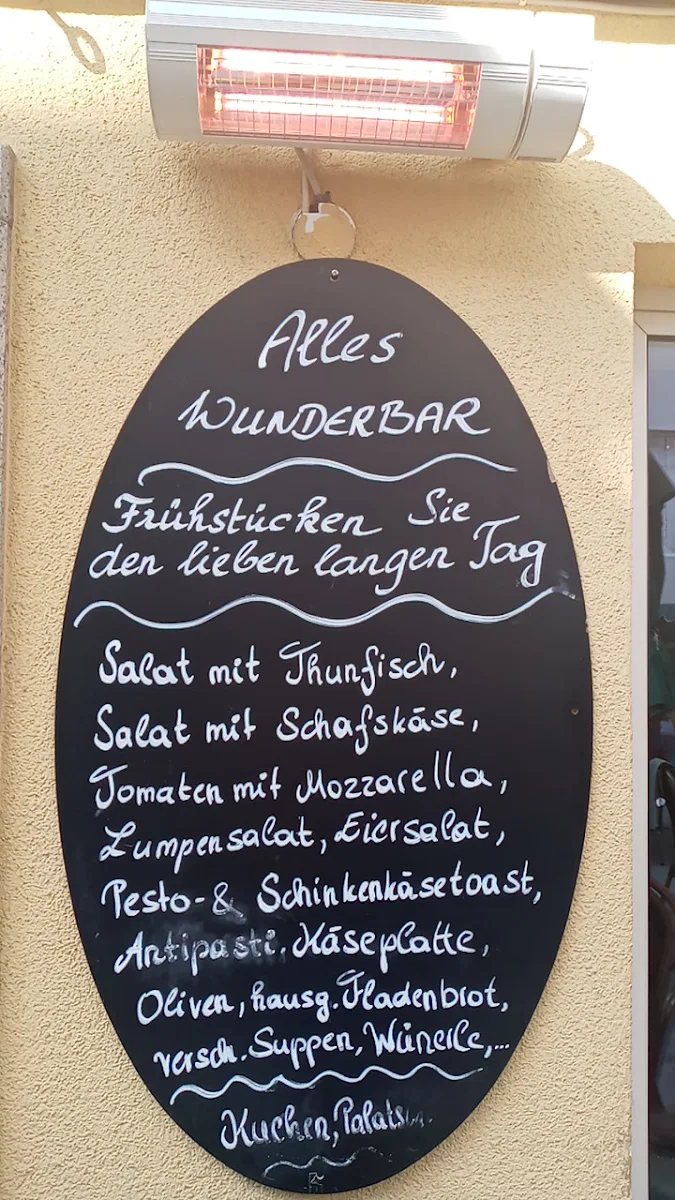 Alles
WUNDERBAR
Frühstücken Sie
den lieben langen Tag
Salat mit Thunfisch,
Salat mit Schafskäse,
Tomaten mit Mozzarella,
Lumpensalat, Eiersalat,
Pesto-& Schinkenkäsetoast,
Antipasti, Käseplatte,
Oliven, hausg. Fladenbrot,
versch. Suppen,
Kuchen,